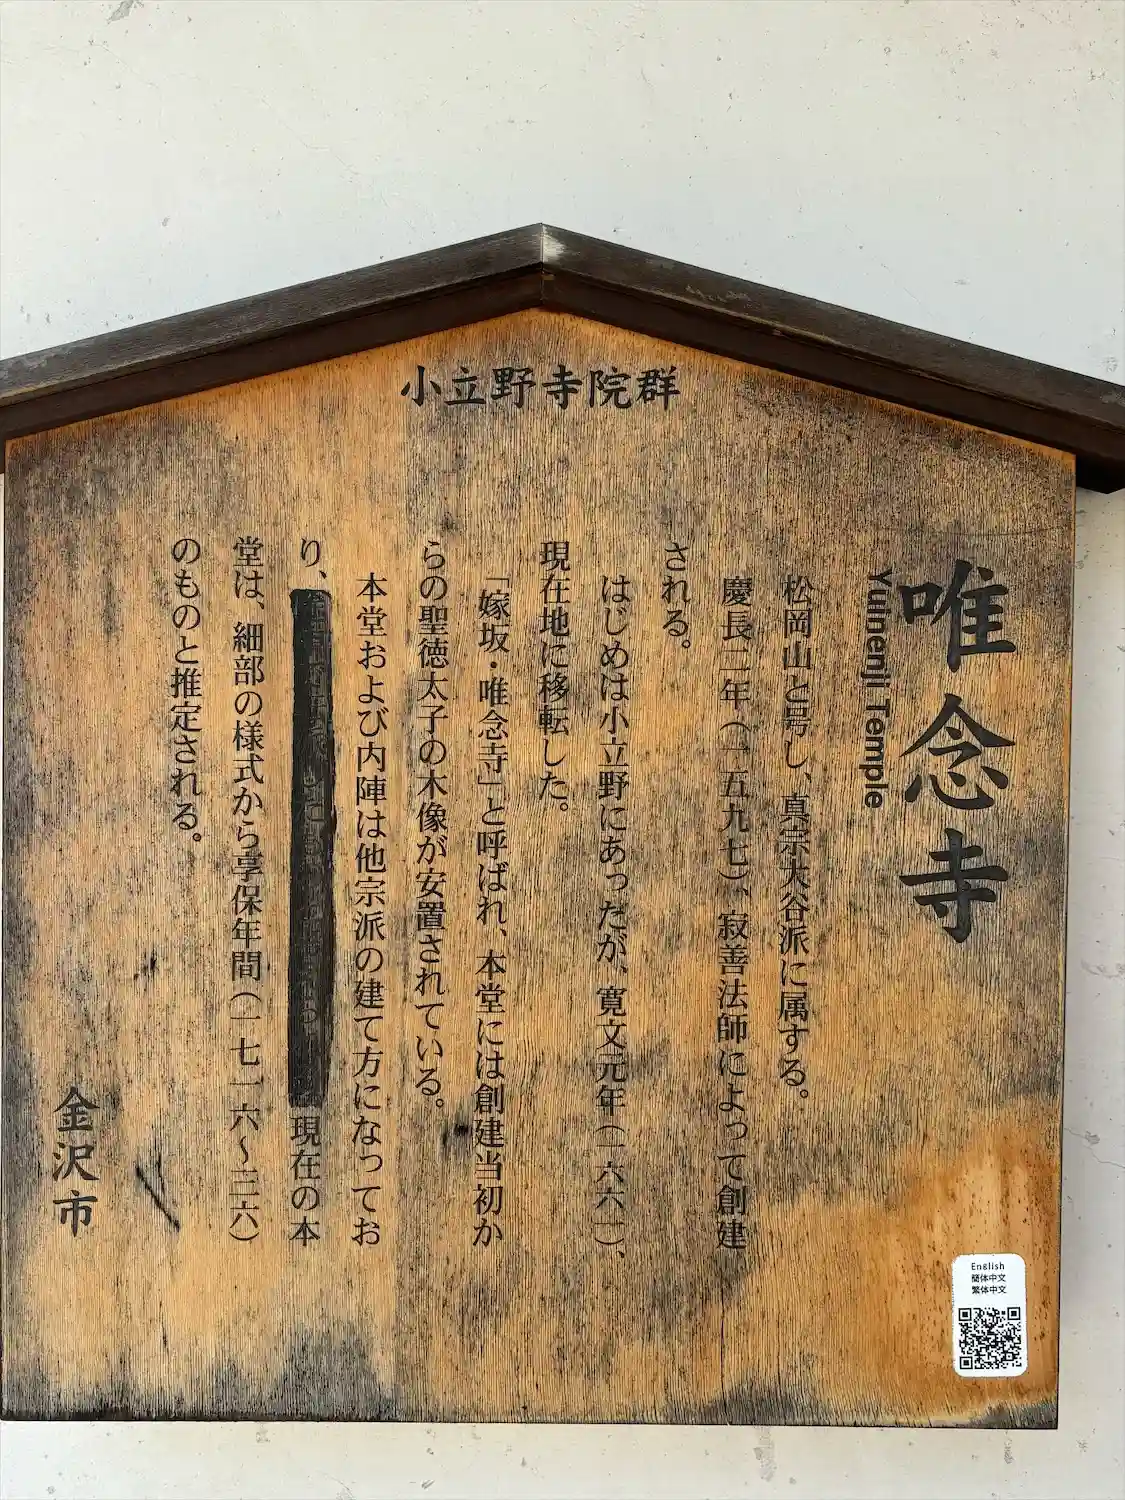 小立野寺院群
唯念寺
Yuinenji Temple
松岡山と号し、真宗大谷派に属する。
慶長二年（一五九七）、寂善法師によって創建
される。
はじめは小立野にあったが、寛文元年（一六六一）、
現在地に移転した。
「嫁坂・唯念寺」と呼ばれ、本堂には創建当初か
らの聖徳太子の木像が安置されている。
本堂および内陣は他宗派の建て方になってお
り、現在の本
堂は、細部の様式から享保年間（一七一六〜三六）
のものと推定される。
金沢市
English
簡体中文
繁体中文